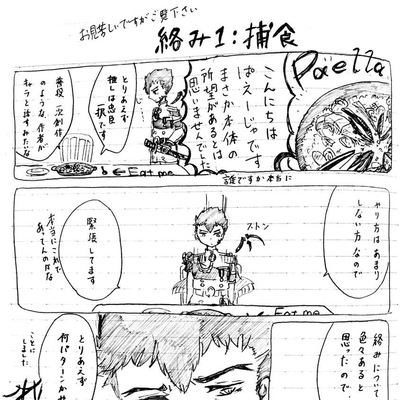 お見苦しいですがご覧下さい
絡み1：捕食
Paella
こんにちは
ぱえーじゃです
まさか本体の
があるとは
思いませんでした
とりあえず
推しは忠臣
一択です
普段一次創作
のような、作者が
キャラと話すみたいな
Eat me
誰ですか本当に
やり方はあまり
しない方なので
ストン
緊張してます
本当にこれで
あってんのかな
Eat me
絡みについて
色々あると
思ったので、
とりあえず
何パターンか
ことに
しました